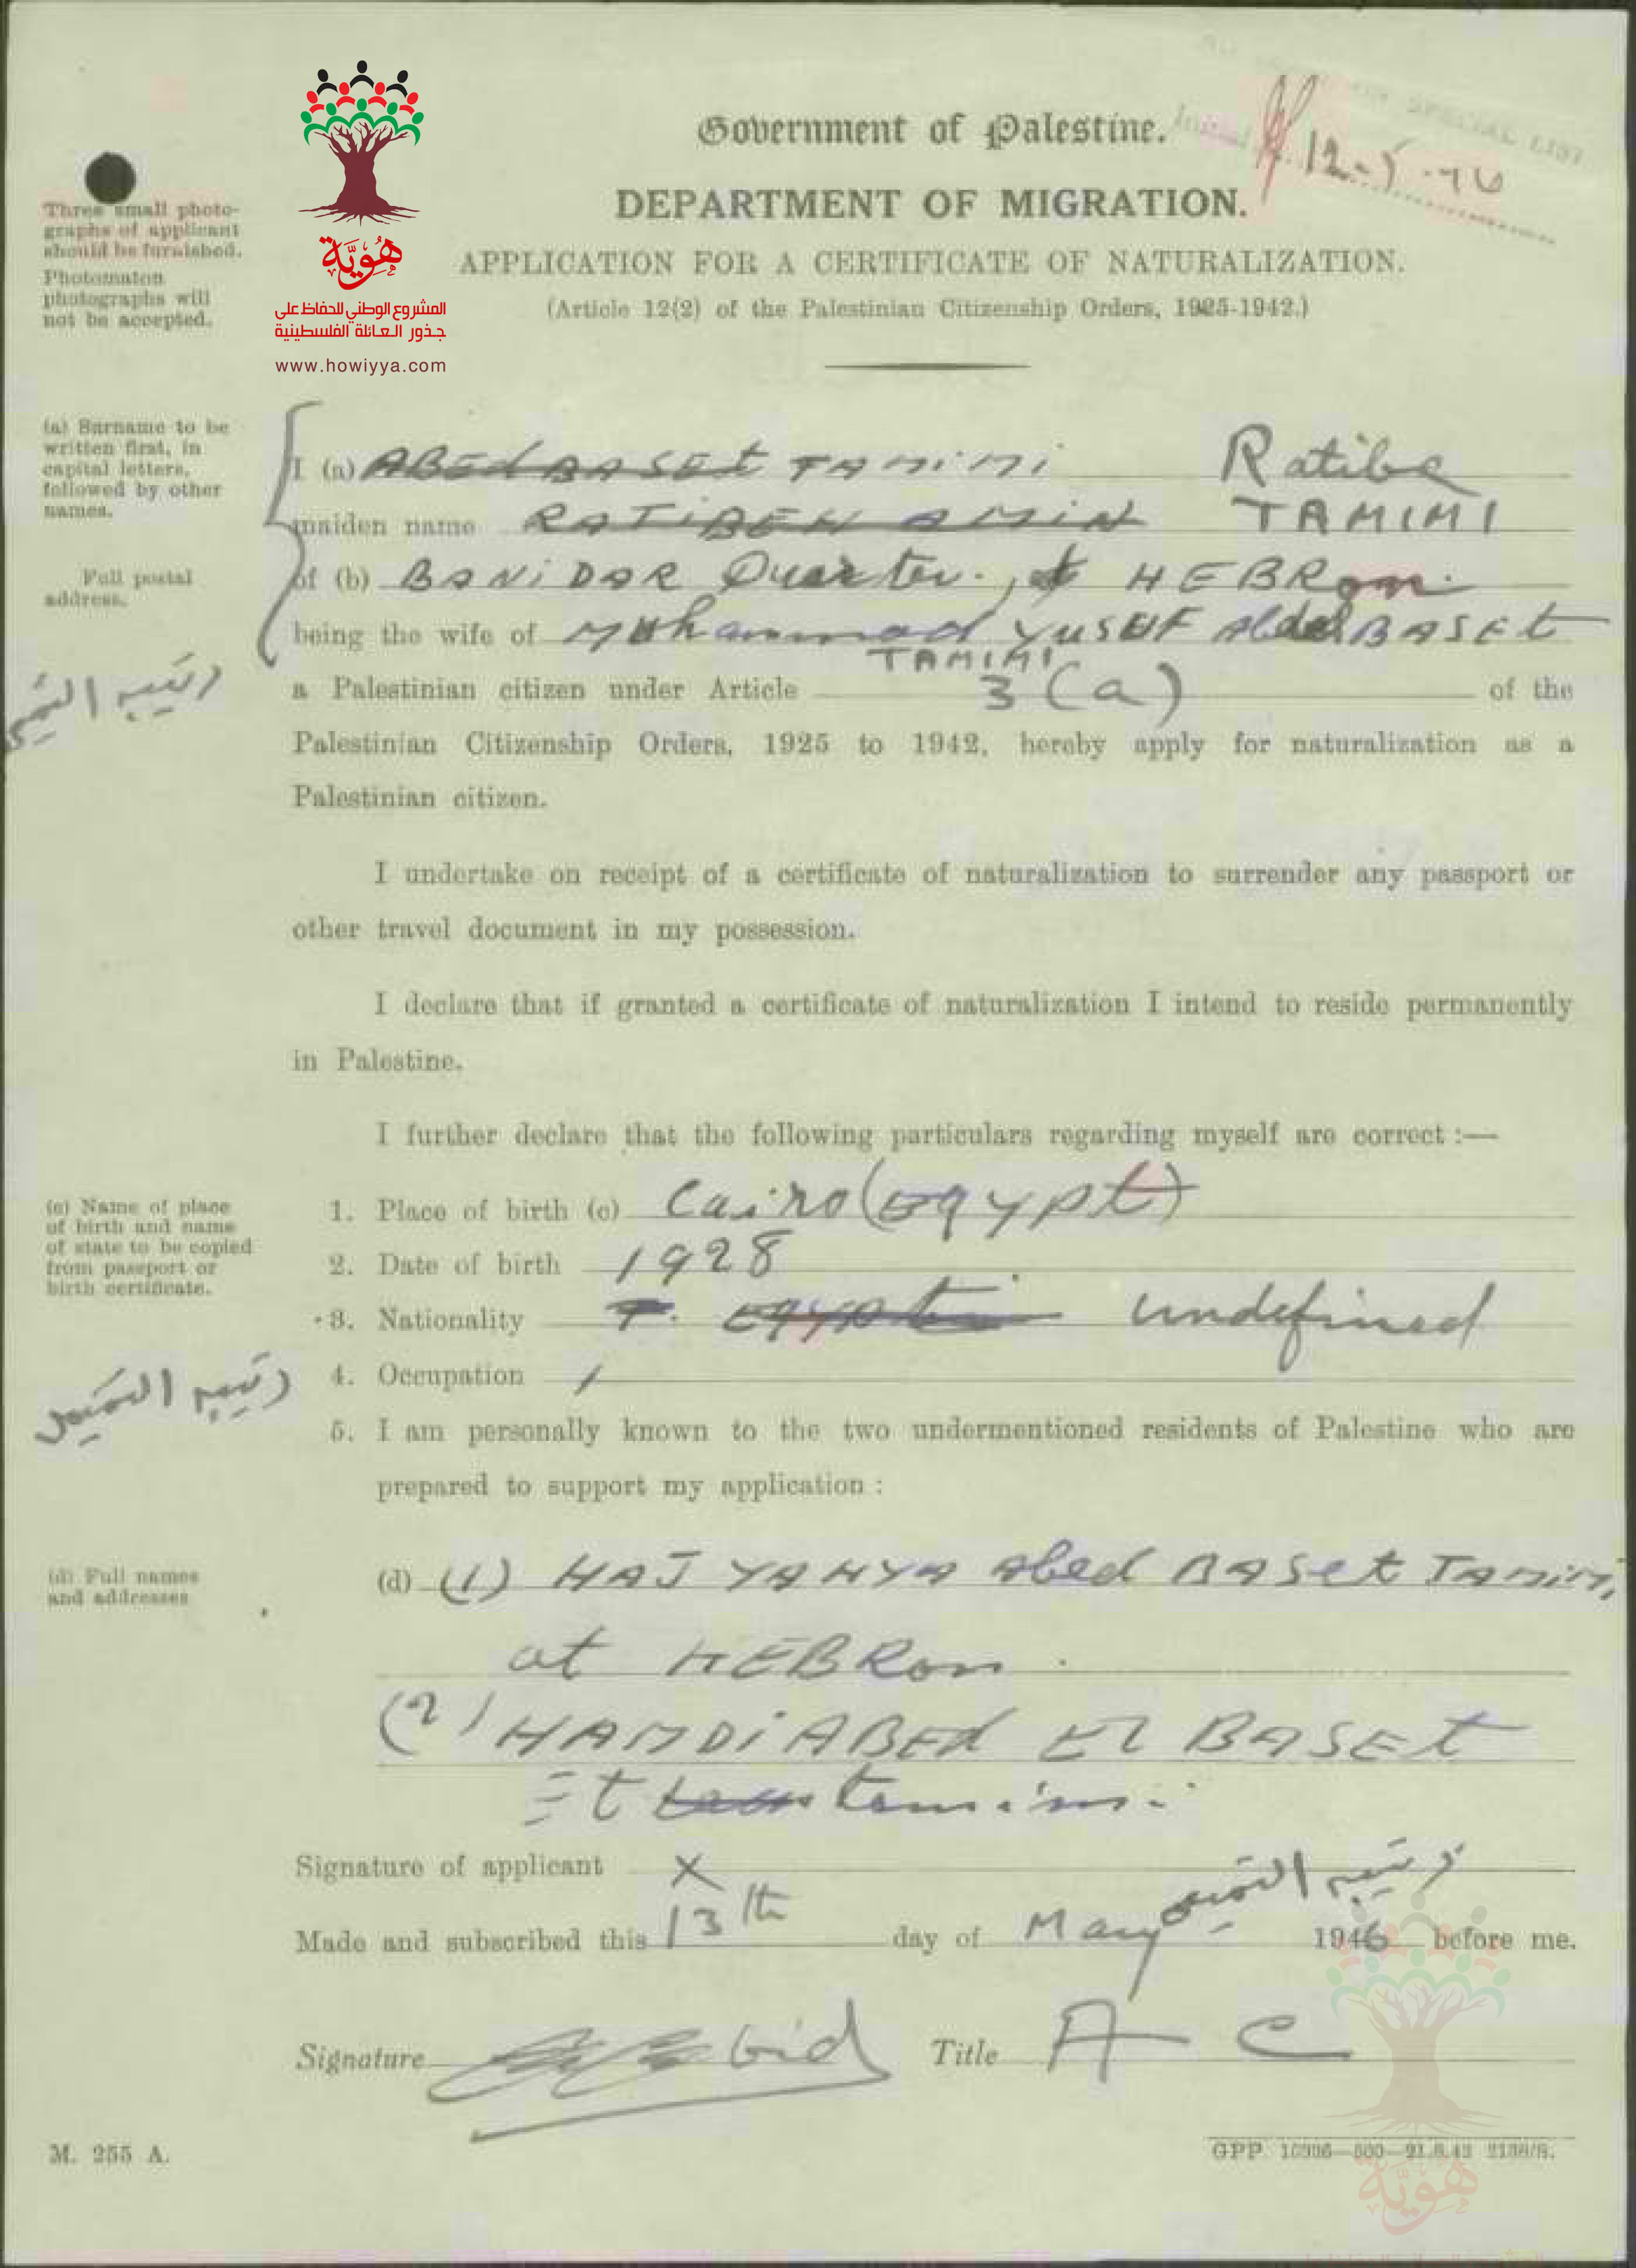 SPECIAL LIST
Initial
12-5-46
Government of Palestine.
DEPARTMENT OF MIGRATION.
APPLICATION FOR A CERTIFICATE OF NATURALIZATION.
(Article 12(2) of the Palestinian Citizenship Orders, 1925-1942.)
Three small photo-
graphs of applicant
should be furnished.
Photomaton
photographs will
not be accepted.
هُوِيَّة
المشروع الوطني للحفاظ على
جذور العائلة الفلسطينية
www.howiyya.com
(a) Surname to be
written first, in
capital letters,
followed by other
names.
I (a) ABEd BASEt TAMiMi Ratiba
maiden name RATIBEH AMiN TAMIMI
Full postal
address.
of (b) BANiDAR Quarter. HEBRon.
being the wife of Muhammad YUSUF Abdel BASEt
TAMIMI
رتيبه التميمي
a Palestinian citizen under Article 3 (a) of the
Palestinian Citizenship Orders, 1925 to 1942, hereby apply for naturalization as a
Palestinian citizen.
I undertake on receipt of a certificate of naturalization to surrender any passport or
other travel document in my possession.
I declare that if granted a certificate of naturalization I intend to reside permanently
in Palestine.
I further declare that the following particulars regarding myself are correct :—
(c) Name of place
of birth and name
of state to be copied
from passport or
birth certificate.
1. Place of birth (c) Cairo (Egypt)
2. Date of birth 1928
3. Nationality undefined
4. Occupation /
رتيبه التميمي
5. I am personally known to the two undermentioned residents of Palestine who are
prepared to support my application :
(d) Full names
and addresses
(d) (1) HAJ YAHYA Abed BASet TAMiMi
at HEBRon.
(2) HAMDi ABEd El BASEt
Et tamimi.
Signature of applicant X رتيبه التميمي
Made and subscribed this 13th day of May 1946 before me.
Signature Title A C
M. 255 A.
GPP. 10936—500—21.8.43 2138/S.
هُوِيَّة